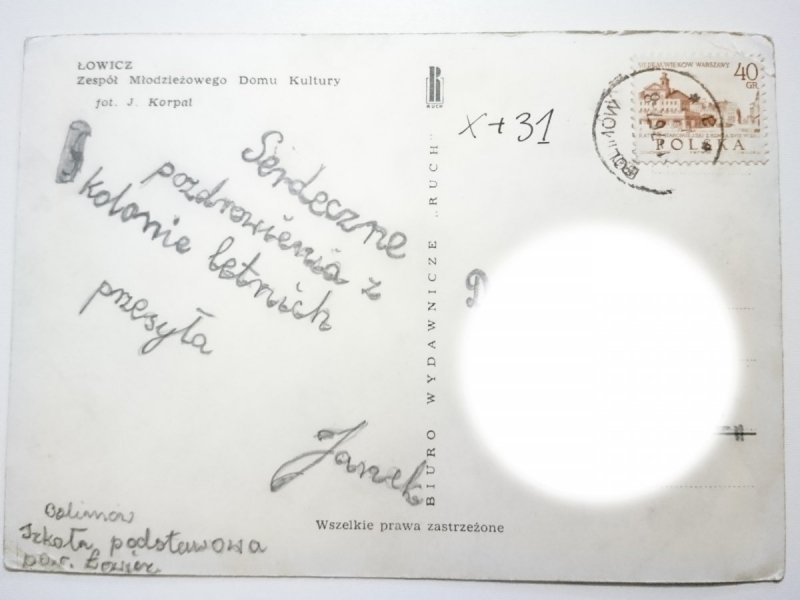 ŁOWICZ
Zespół Młodzieżowego Domu Kultury
fot. J. Korpal
Serdeczne
pozdrowienia z
kolonie letnich
przesyła
Janek
Bolimów
Szkoła podstawowa
pow. Łowicz
BIURO WYDAWNICZE „RUCH"
RUCH
x+31
VII WIEKÓW WARSZAWY
40
GR
POLSKA
BOLIMÓW
Wszelkie prawa zastrzeżone